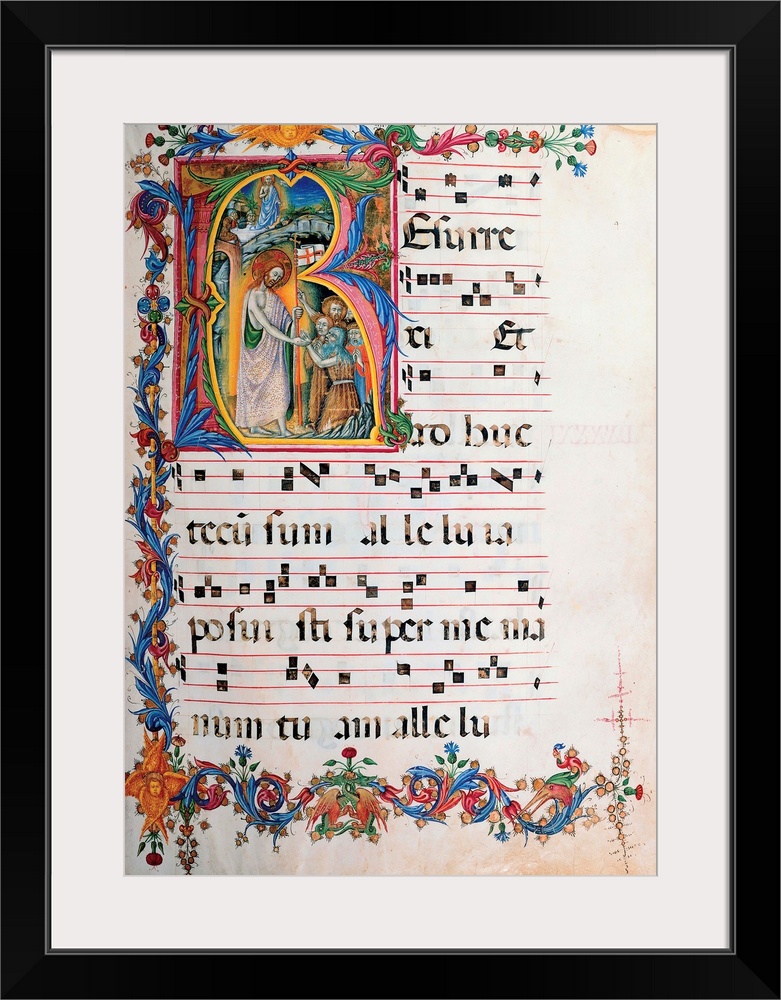 R Esurre
xi Et
ad huc
tecū sum al le lu ia
posui sti super me ma
num tu am alle lu